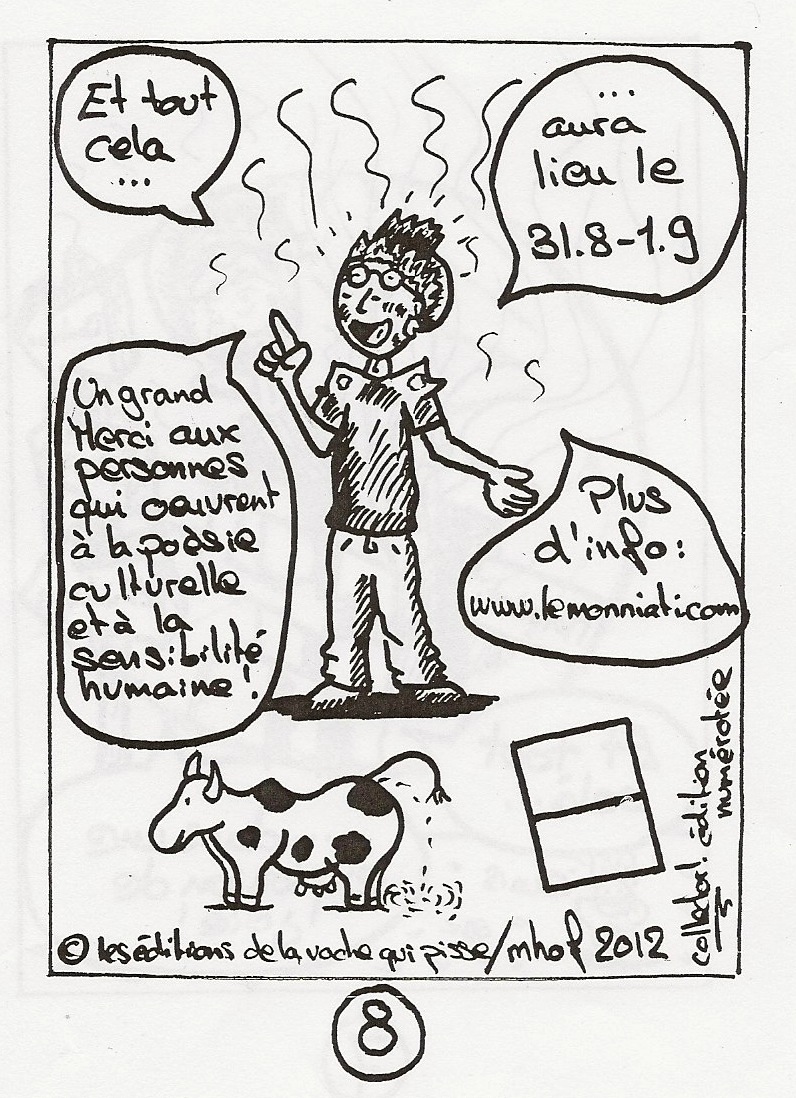 Et tout
cela
...
...
aura
lieu le
31.8-1.9
Un grand
Merci aux
personnes
qui oeuvrent
à la poèsie
culturelle
et à la
sensibilité
humaine !
Plus
d'info :
www.lemonniati.com
collector! édition
numérotée
© les éditions de la vache qui pisse/mhof 2012
8